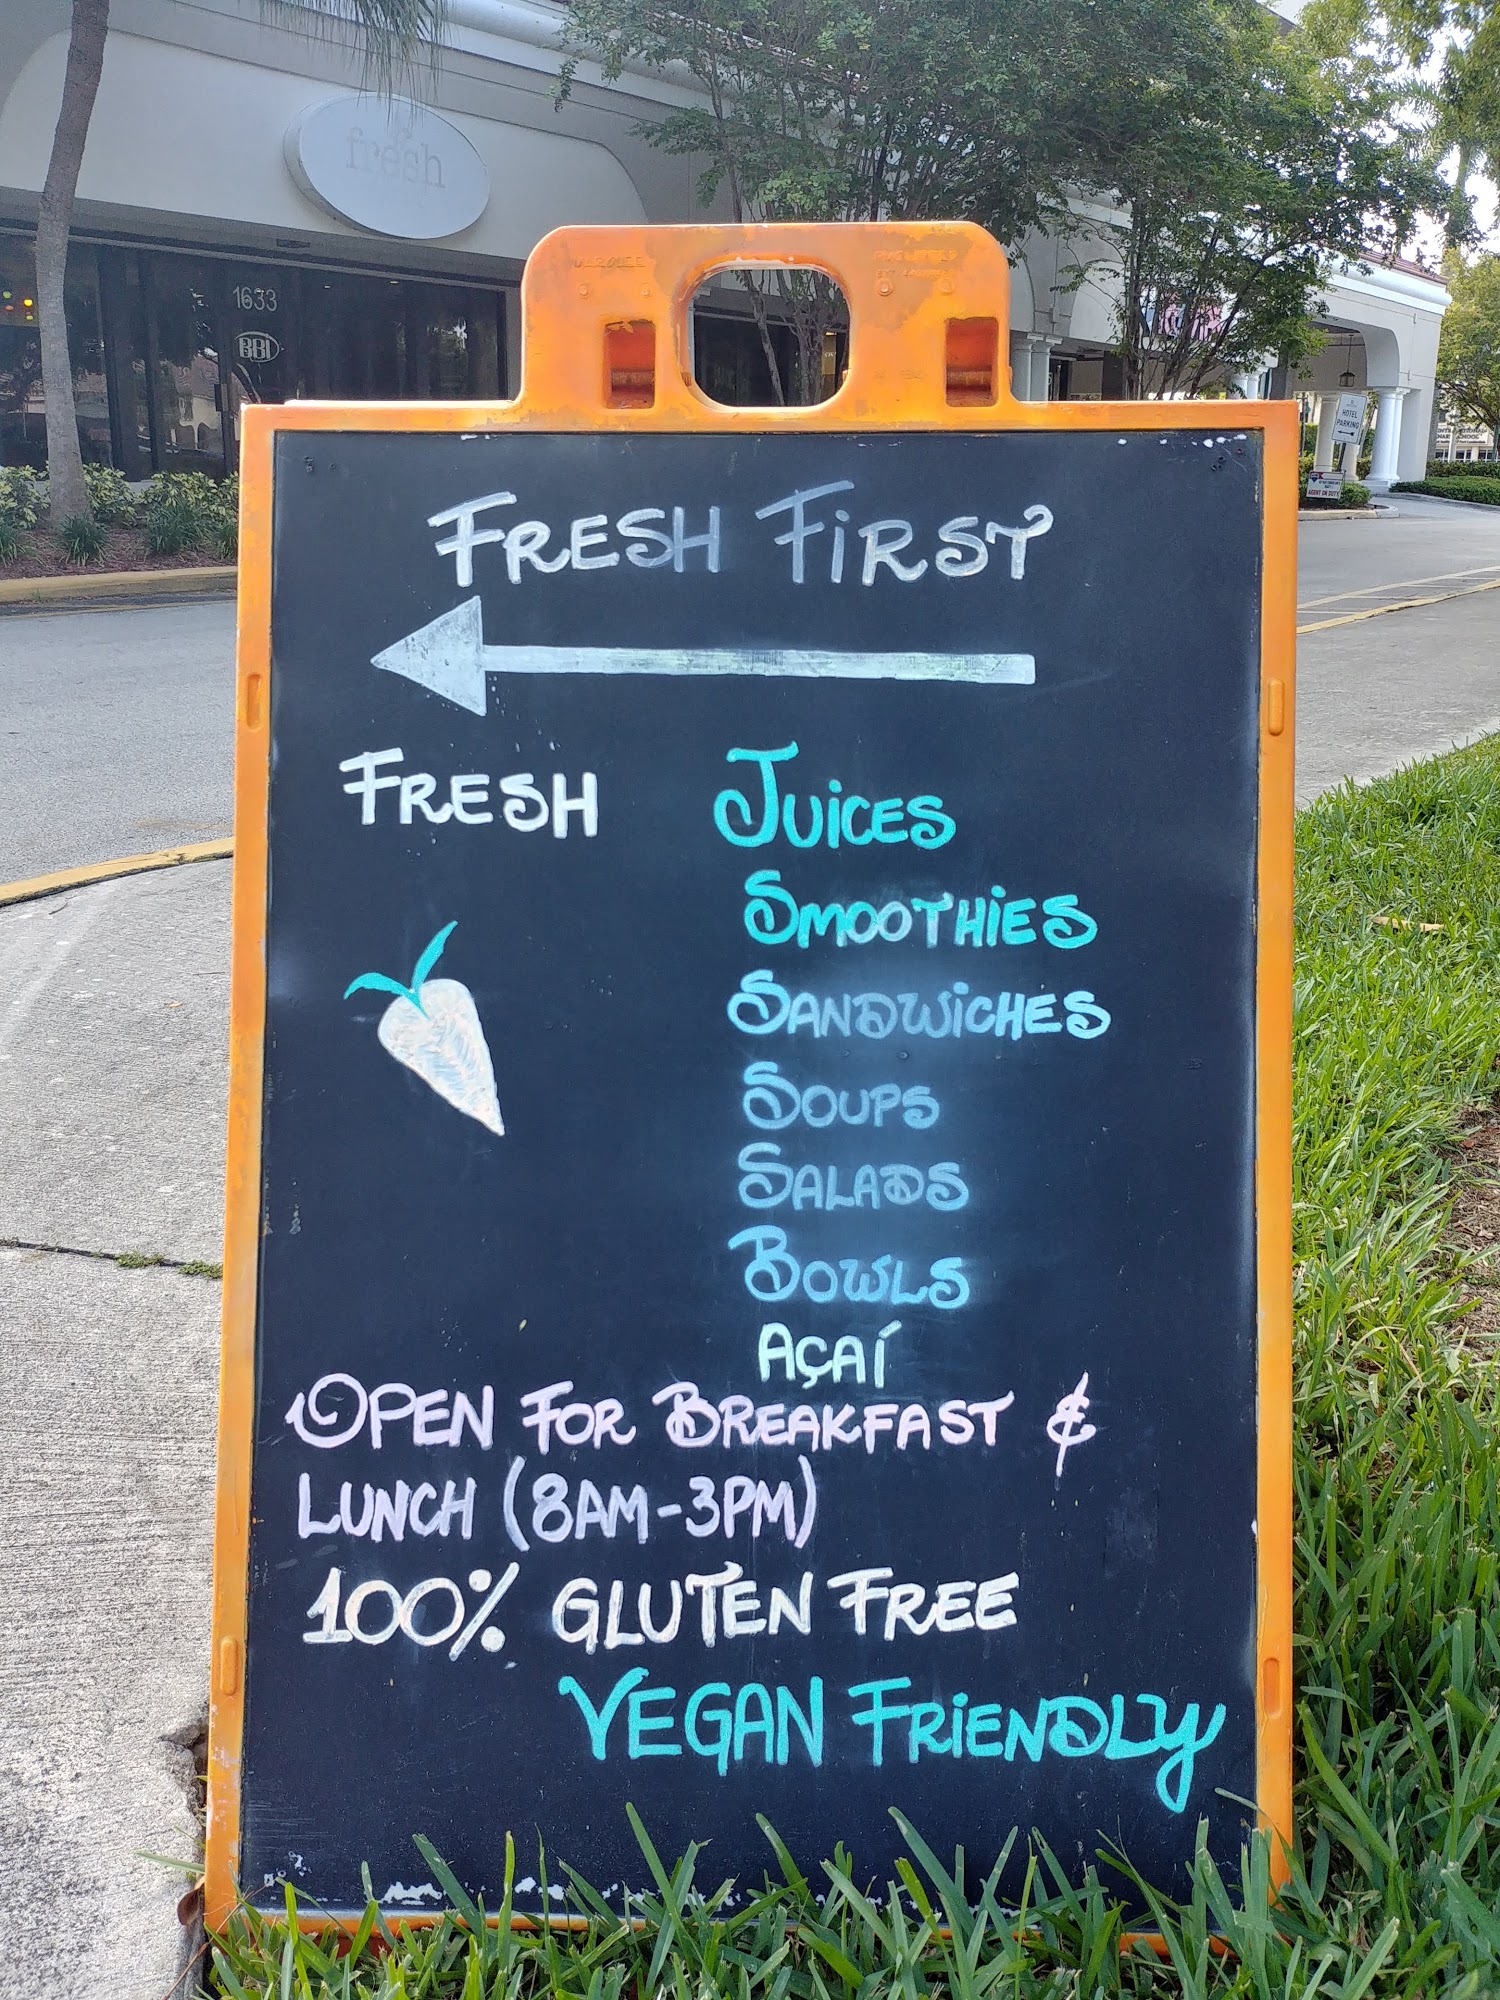 fresh
1633
BBI
HOTEL
PARKING
AGENT ON DUTY
FRESH FIRST
FRESH JUICES
SMOOTHIES
SANDWICHES
SOUPS
SALADS
BOWLS
AÇAÍ
OPEN FOR BREAKFAST &
LUNCH (8AM-3PM)
100% GLUTEN FREE
VEGAN FRIENDLY